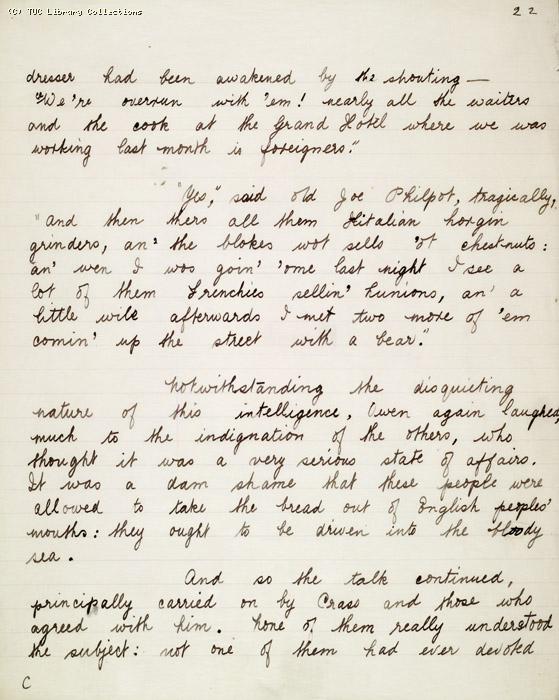 (C) TUC Library Collections
22
dresser had been awakened by the shouting—
"We're overrun with 'em! nearly all the waiters
and the cook at the Grand Hotel where we was
working last month is foreigners."
"Yes," said old Joe Philpot, tragically,
"and then thers all them Hitalian horgin
grinders, an' the blokes wot sells 'ot chestnuts:
an' wen I wos goin' 'ome last night I see a
lot of them Frenchies sellin' hunions, an' a
little wile afterwards I met two more of 'em
comin' up the street with a bear."
Notwithstanding the disquieting
nature of this intelligence, Owen again laughed,
much to the indignation of the others, who
thought it was a very serious state of affairs.
It was a dam shame that these people were
allowed to take the bread out of English peoples'
mouths: they ought to be driven into the bloody
sea.
And so the talk continued,
principally carried on by Crass and those who
agreed with him. None of them really understood
the subject: not one of them had ever devoted
C